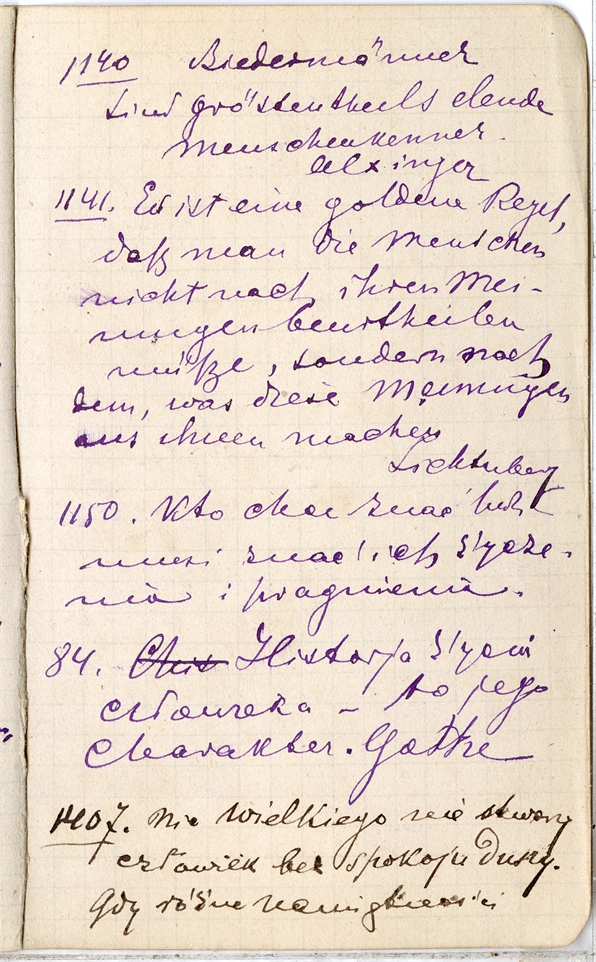 1140 Biedermänner
sind größtentheils elende
Menschenkenner.
Alxinger
1141. Es ist eine goldene Regel,
daß man die Menschen
nicht nach ihren Mei-
nungen beurtheilen
müße, sondern nach
dem, was diese Meinungen
aus ihnen machen
Lichtenberg
1150. Kto chce znać ludzi
musi znać ich życze-
nia i pragnienia.
84. Historja życia
człowieka – to jego
charakter. Goethe
1407. Nic wielkiego nie stworzy
człowiek bez spokoju duszy.
Gdy różne namiętności